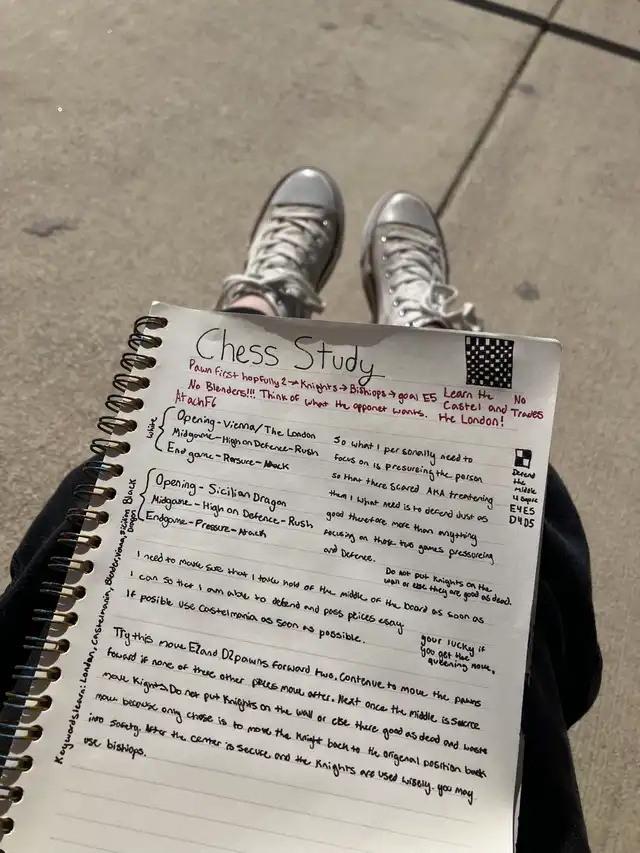 Chess Study
Pawn first hopfully 2→Knights→Bishiops→goal E5
No Blenders!!! Think of what the opponet wants.
AtachF6
Learn the
Castel and
the London!
No
Trades
White
Opening - Vienna/The London
Midgame - High on Defence - Rush
End game - Persure - Atack
Black
Sicilian Dragon
Opening - Sicilian Dragon
Midgame - High on Defence - Rush
Endgame - Pressure - Atach
So what I personally need to
focus on is pressureing the person
so that there scared AKA treatening
then I what need is to defend just as
good therefore more than anything
focusing on those two games pressureing
and Defence.
Defend
the
middle
4 sqare
E4E5
D4D5
Do not put Knights on the
wall or else they are good as dead.
I need to make sure that I take hold of the middle of the board as soon as
I can so that I am able to defend and pass peices easy.
If posible use Castelmania as soon as possible.
your lucky if
you get the
queening move.
Try this move E2and D2pawns forward two. Contenue to move the pawns
foward if none of there other pieces move after. Next once the middle is secure
move Kights→Do not put Knights on the wall or else there good as dead and waste
move because only chose is to move the Knight back to the origenal position back
into safety. After the center is secure and the Knights are used wisely. you may
use bishiops.
Keywordslearn: London, Castelmania, Blender, Viena,